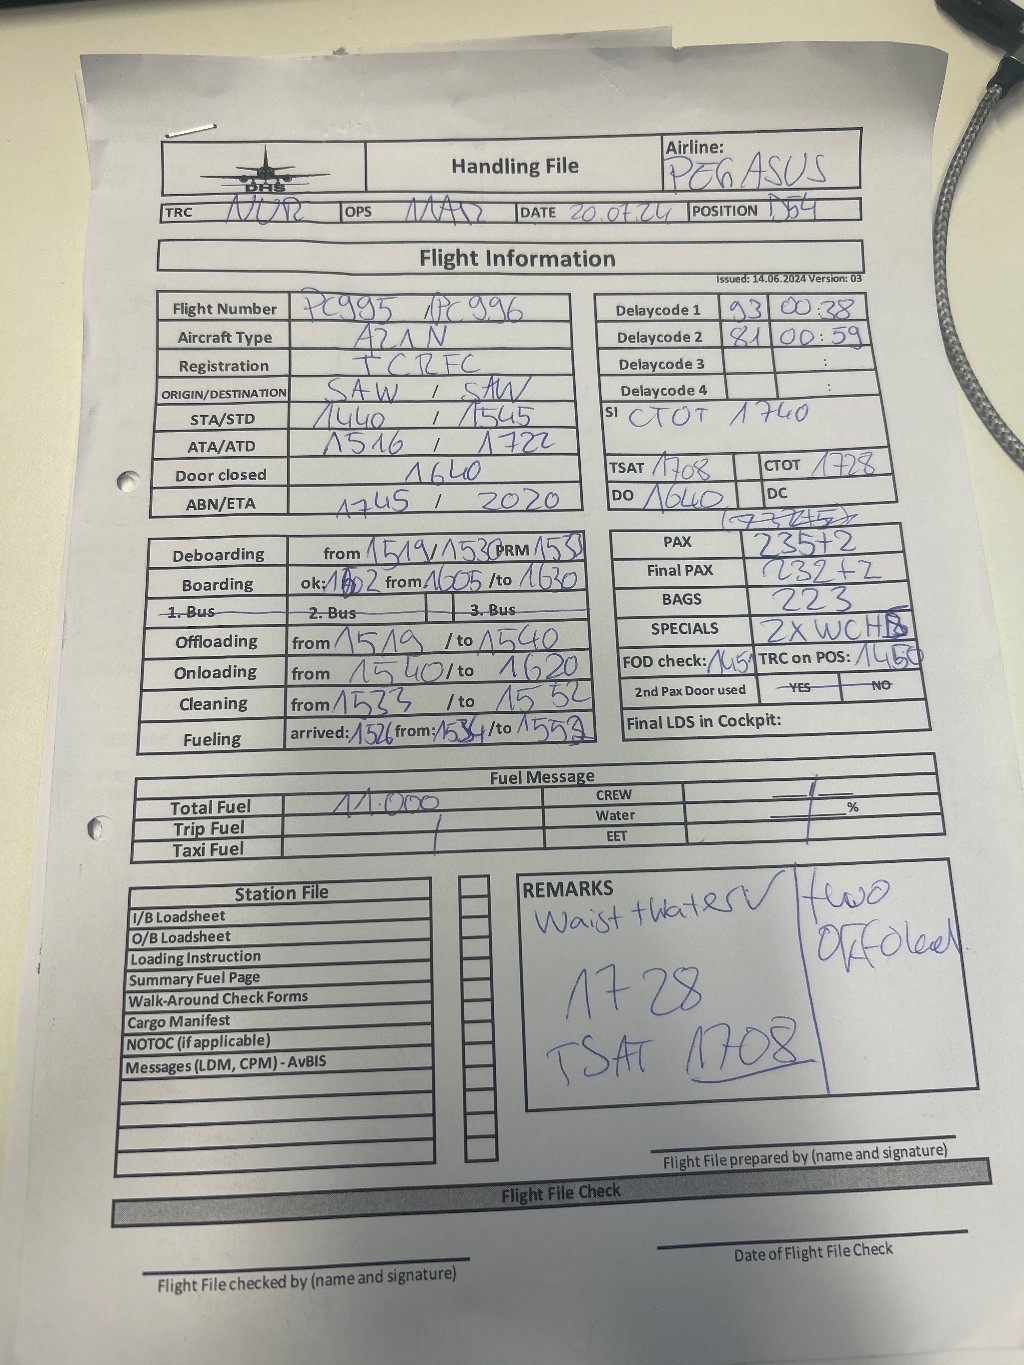 DHS
Handling File
Airline:
PEGASUS
TRC NUR OPS MAR DATE 20.07.24 POSITION D54
Flight Information
Issued: 14.06.2024 Version: 03
Flight Number PC995 /PC996
Aircraft Type A21N
Registration TCRFC
ORIGIN/DESTINATION SAW / SAW
STA/STD 1440 / 1545
ATA/ATD 1516 / 1722
Door closed 1640
ABN/ETA 1745 / 2020
Delaycode 1 93 00:38
Delaycode 2 81 00:59
Delaycode 3 :
Delaycode 4 :
SI CTOT 1740
TSAT 1708 CTOT 1728
DO 1640 DC
Deboarding from 1519/1530 PRM 1533
Boarding ok: 1602 from 1605 /to 1630
1. Bus 2. Bus 3. Bus
Offloading from 1519 /to 1540
Onloading from 1540 /to 1620
Cleaning from 1533 /to 1552
Fueling arrived: 1526 from: 1534 /to 1553
PAX 235+2
Final PAX 232+2
BAGS 223
SPECIALS 2X WCHS
FOD check: 1451 TRC on POS: 1450
2nd Pax Door used YES NO
Final LDS in Cockpit:
Fuel Message
Total Fuel 11.000 CREW
Trip Fuel Water %
Taxi Fuel EET
Station File
I/B Loadsheet
O/B Loadsheet
Loading Instruction
Summary Fuel Page
Walk-Around Check Forms
Cargo Manifest
NOTOC (if applicable)
Messages (LDM, CPM) - AvBIS
REMARKS
Waist + Water ✓
1728
TSAT 1708
two
OFFOload
Flight File prepared by (name and signature)
Flight File Check
Flight File checked by (name and signature)
Date of Flight File Check